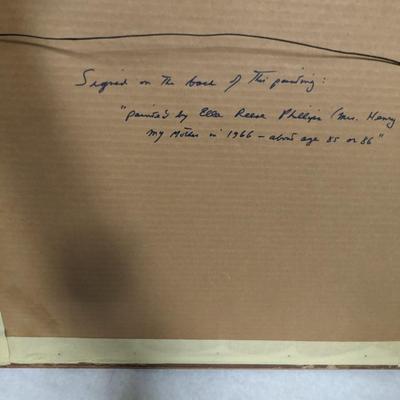 Signed on the back of this painting:
"painted by Ella Reese Phillips (Mrs. Henry
my mother in 1966 - about age 85 or 86"